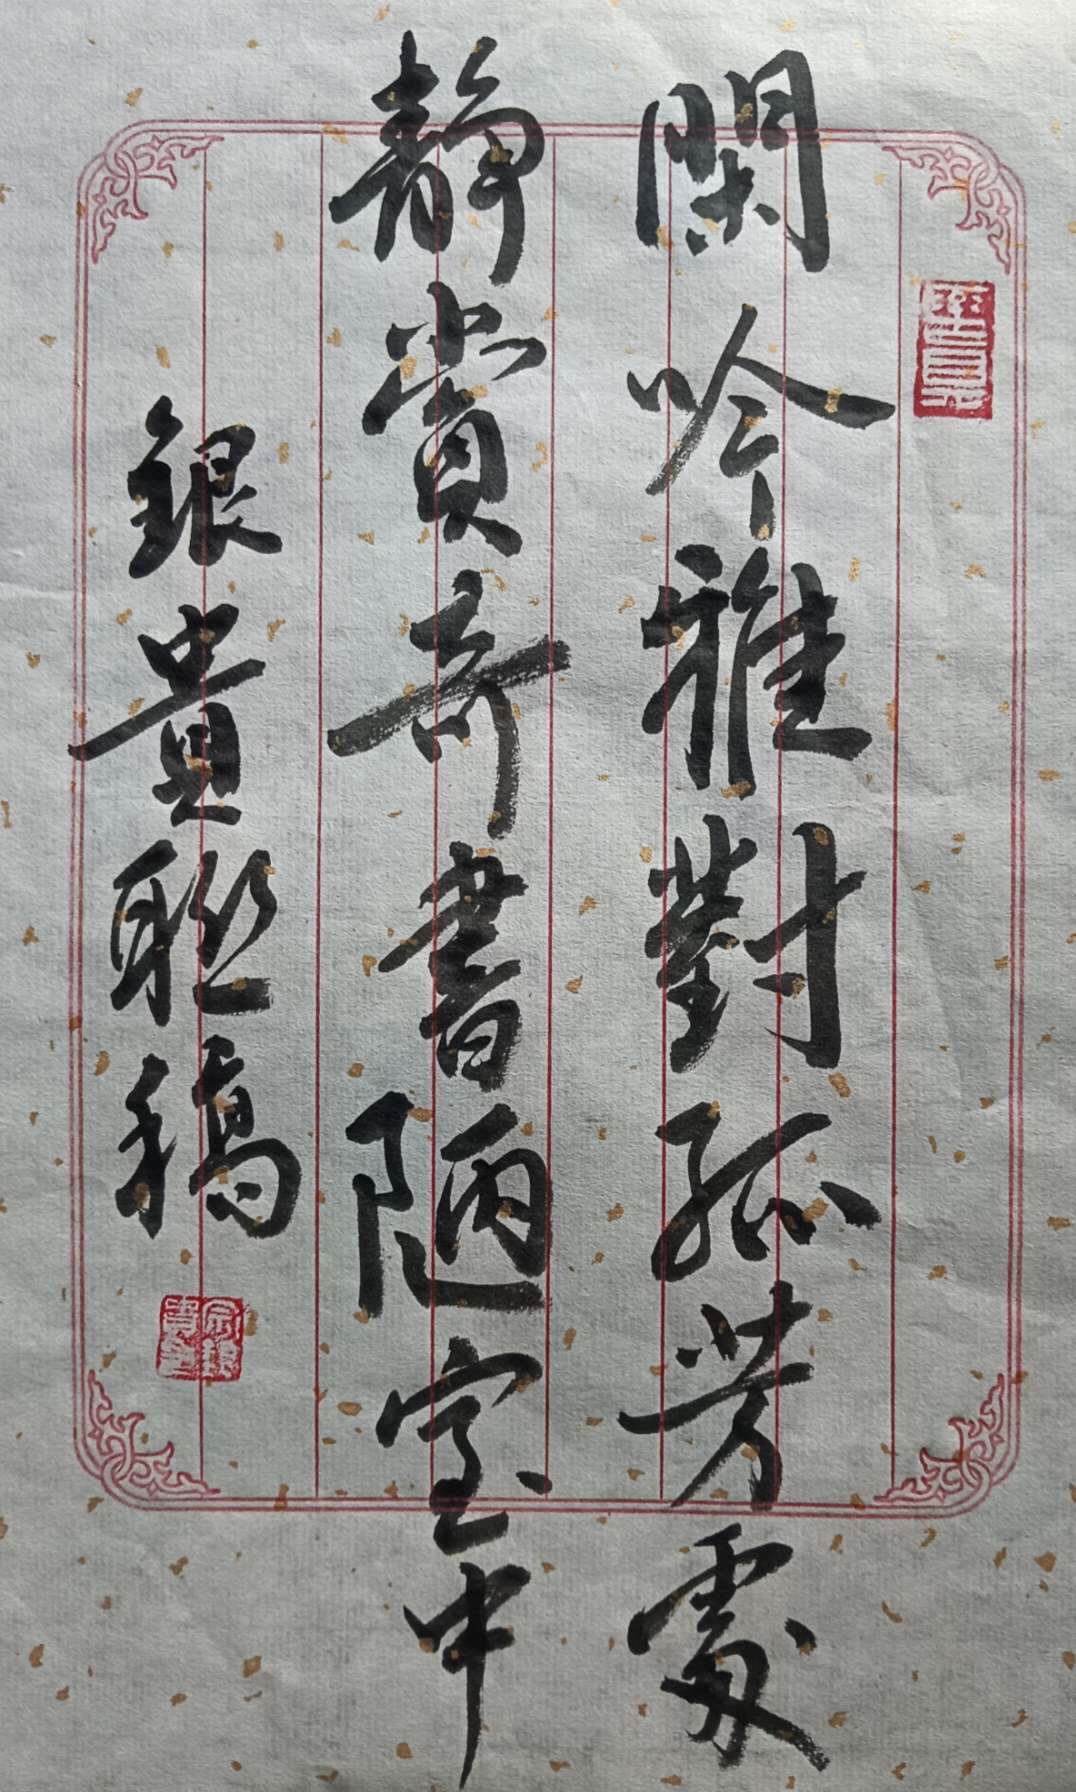 閑吟雅對孤芳處
静賞奇書陋室中
銀貴聯稿